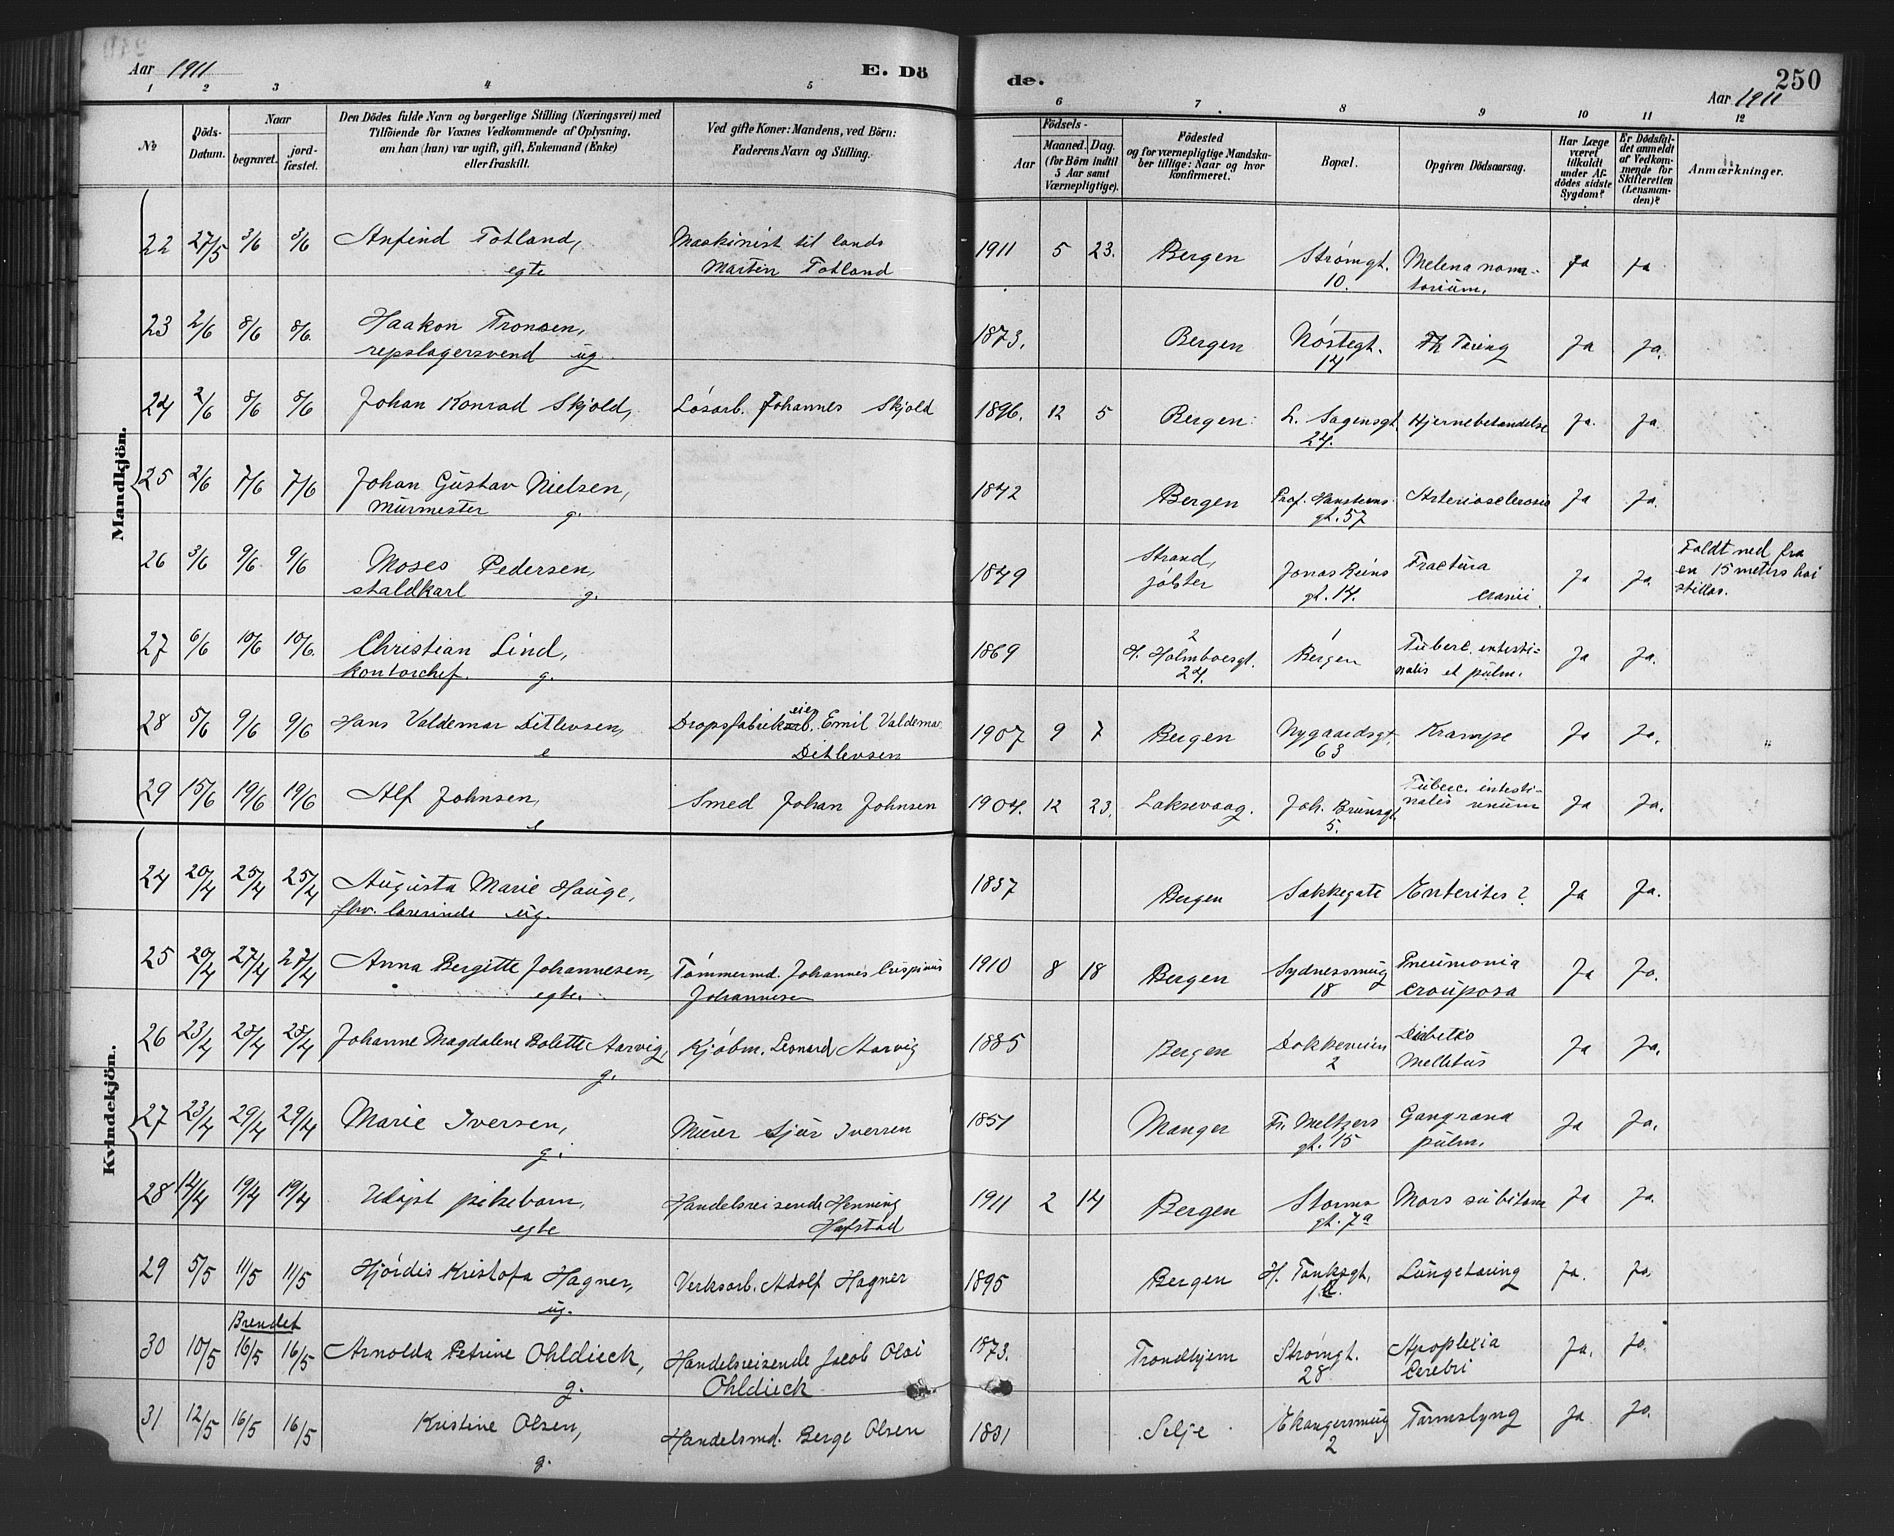 Aar 1911
E. Dö
de.
250
Aar 1911
1 2 3 4 5 6 7 8 9 10 11 12
No
Döds-Datum.
Naar
begravet.
jord-fæstet.
Den Dödes fulde Navn og borgerlige Stilling (Næringsvei) med
Tilföiende for Voxnes Vedkommende af Oplysning,
om han (hun) var ugift, gift, Enkemand (Enke)
eller fraskilt.
Ved gifte Koner: Mandens, ved Börn:
Faderens Navn og Stilling.
Födsels-
Aar
Maaned. Dag.
(for Börn indtil
5 Aar samt
Værnepligtige).
Födested
og for værnepligtige Mandska-
ber tillige: Naar og hvor
konfirmeret.
Bopæl.
Opgiven Dödsaarsag.
Har Læge
været
tilkaldt
under Af-
dödes sidste
Sygdom?
Er Dödsfal-
det anmeldt
af Vedkom-
mende for
Skifteretten
(Lensman-
den)?
Anmærkninger.
Mandkjön.
22 27/5 3/6 3/6 Anfind Totland, Maskinist til lands 1911 5 23. Bergen Strømgt. Melena
egte Martin Totland 10. Ja Ja
23 2/6 8/6 8/6 Haakon Tronsen, 1873. Bergen Nøstegt. Tæring Ja Ja.
repslagersvend ug. 14
24 2/6 8/6 8/6 Johan Konrad Skjold, Løsarb. Johannes Skjold 1896. 12 5 Bergen L. Sagensgt. Hjernebetændelse Ja. Ja.
24.
25 2/6 7/6 7/6 Johan Gustav Nielsen, 1842 Bergen Prof. Hansteens Arteriosclerosis Ja Ja.
Murmester g. gt. 57
26 3/6 9/6 9/6 Moses Pedersen, 1849 Strand, Jonas Reins Fractura Ja Ja. Faldt ned fra
staldkarl g. Jølster gt. 14. cranii. en 15 meters høi
stillas.
27 6/6 10/6 10/6 Christian Lind, 1869 2 H. Holmboesgt. 1 Bergen Tuberc. intesti- Ja Ja.
kontorchef. g. 24. nalis et pulm.
28 5/6 9/6 9/6 Hans Valdemar Ditlevsen, Dropsfabrikeier Emil Valdemar 1907 9 7 Bergen Nygaardsgt. Krampe Ja Ja. "
e Ditlevsen 63
29 15/6 19/6 19/6 Alf Johnsen, Smed Johan Johnsen 1904. 12 23. Laksevaag. Joh. Brunsgt. Tuberc. intesti- Ja Ja.
e 5. nalis
Kvindekjön.
24 20/4 25/4 25/4 Augusta Marie Hauge, 1837 Bergen Sækkegate Enterites? Ja Ja.
fhv. lærerinde ug. 1
25 20/4 27/4 27/4 Anna Bergitte Johannesen, Tømmermd. Johannes Crispinus 1910 8 18 Bergen Sydnessmug Pneumonia Ja Jo.
egte. Johannesen 18 crouposa
26 23/4 28/4 28/4 Johanne Magdalene Bolette Aarvig, Kjøbm. Leonard Aarvig 1885 Bergen Dokkeveien Diabetes Ja Ja.
g. 2 Mellitus
27 23/4 29/4 29/4 Marie Iversen, Murer Sjur Iversen 1851 Manger Fr. Meltzers Gangræna Ja Ja.
g. gt. 15 pulm.
28 14/4 19/4 19/4 Udøpt pikebarn, Handelsreisende Henning 1911 2 14 Bergen Storms Mors subitanea Ja Ja.
egte Hafstad gt. 7a
29 5/5 11/5 11/5 Hjørdis Kristofa Hagner, Verksarb. Adolf Hagner 1895 Bergen H. Tanksgt. Lungetæring Ja. Jo.
ug.
Brendet
30 10/5 16/5 16/5 Arnolda Petrine Ohldieck, Handelsreisende Jacob Olai 1873. Trondhjem Strømgt. Apoplexia Ja. Jo.
g. Ohldieck 28 cerebri
31 12/5 16/5 16/5 Kristine Olsen, Handelsmd. Berge Olsen 1831 Selje Ekangersmug Tarmslyng Ja Jo.
g. 2